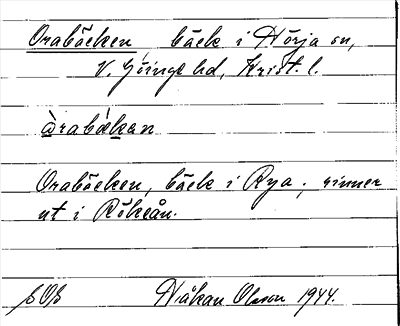 Orabäcken, bäck i Nörja sn,
V. Göinge hd, Krist. l.
òrabækan
Orabäcken, bäck i Rya; rinner
ut i Rökeån.
Håkan Olsson 1944.